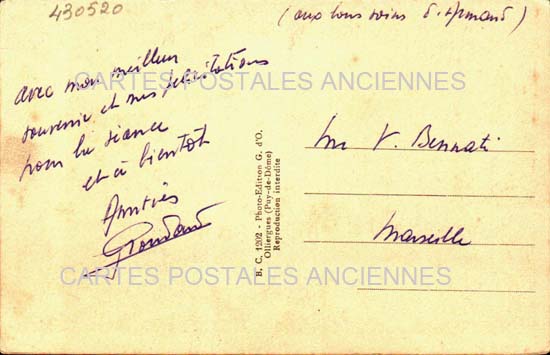 430520
(aux bons soins d'Armand)
avec mon meilleur
souvenir et mes félicitations
pour la séance
et à bientôt
Amitiés
Mr V. Bennati
Marseille
B. C. 1202 - Photo-Edition G. d'O.
Olliergues (Puy-de-Dôme)
Reproduction interdite
CARTES POSTALES ANCIENNES
CARTES POSTALES ANCIENNES